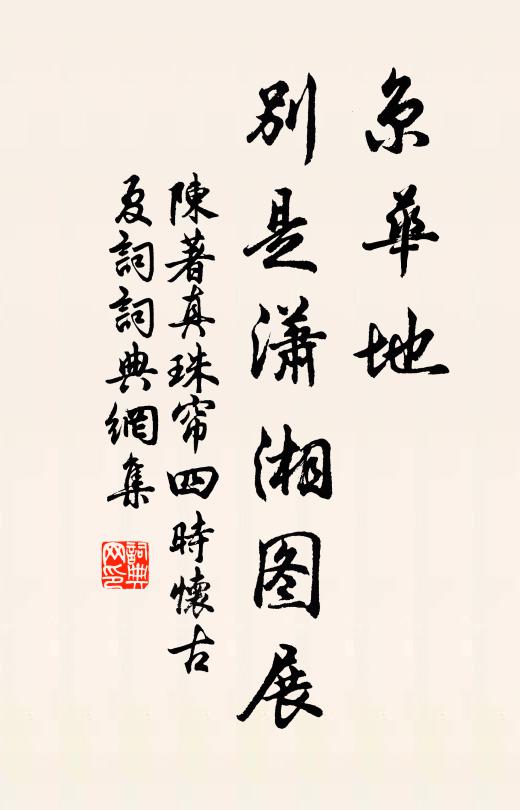 京華地
別是瀟湘图展
陳著真珠帘四時懷古
夏詞詞典網集
詞典
网印